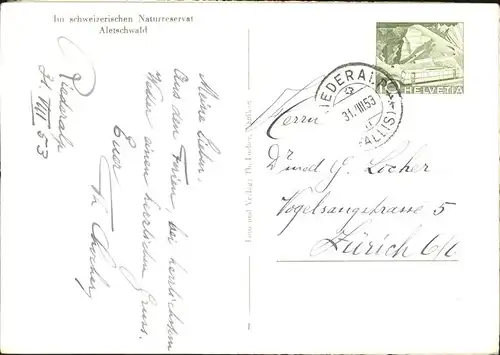 Im schweizerischen Naturreservat
Aletschwald
Riederalp
31. VIII 53
Meine Lieben.
Aus den Ferien bei herrlichstem
Wetter einen herzlichen Gruss.
Euer
Th. Locher
Foto und Verlag: Th. Locher,
RIEDERALP
31.VIII.53
(WALLIS)
10 HELVETIA
Herrn
Dr med G. Locher
Vogelsangstrasse 5
Zürich 6/6